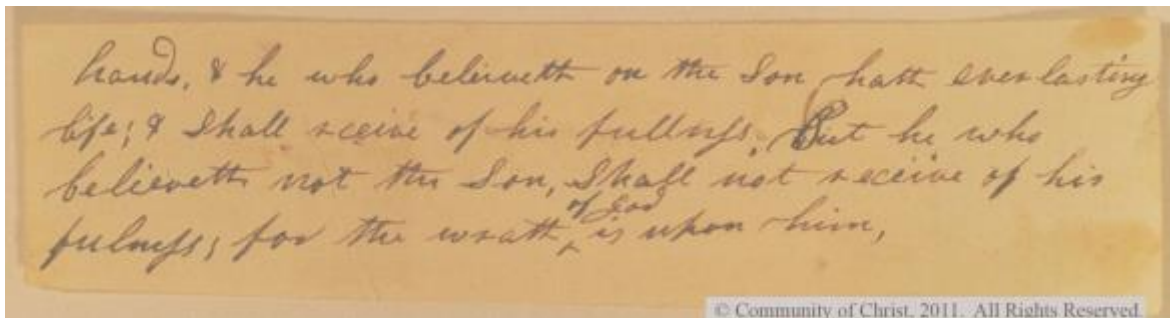 hands, & he who believeth on the Son hath everlasting
life; & Shall receive of his fullness. But he who
believeth not the Son, Shall not receive of his
fulness; for the wrath ^of God^ is upon him,
© Community of Christ, 2011. All Rights Reserved.